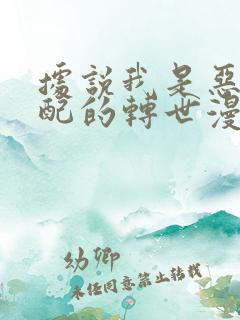 據說我是惡
配的轉世漫
幼卿
未经同意禁止转载